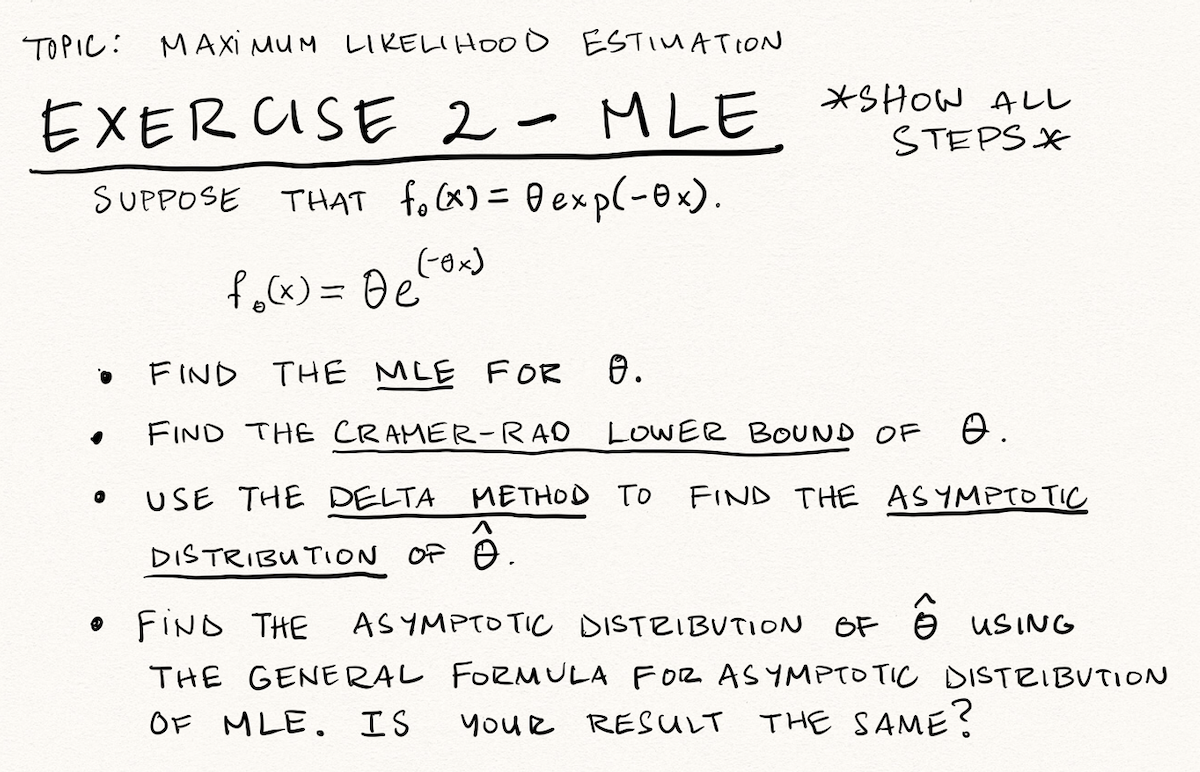 TOPIC: MAXIMUM LIKELIHOOD ESTIMATION
EXERCISE 2 - MLE
*SHOW ALL
STEPS*
SUPPOSE THAT fθ(x) = θ exp(-θx).
fθ(x) = θe^(-θx)
• FIND THE MLE FOR θ.
• FIND THE CRAMER-RAO LOWER BOUND OF θ.
• USE THE DELTA METHOD TO FIND THE ASYMPTOTIC
DISTRIBUTION OF θ̂.
• FIND THE ASYMPTOTIC DISTRIBUTION OF θ̂ USING
THE GENERAL FORMULA FOR ASYMPTOTIC DISTRIBUTION
OF MLE. IS YOUR RESULT THE SAME?